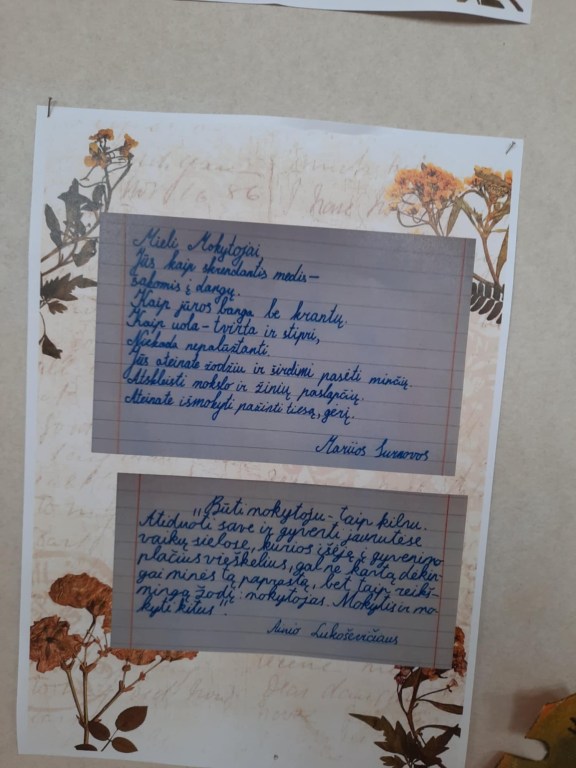 Mieli Mokytojai,
Jūs kaip skrendantis medis-
šakomis į dangų.
Kaip jūros banga be krantų.
Kaip uola - tvirta ir stipri,
Niekada nepalūžtanti.
Jūs ateinate žodžiu ir širdimi pasėti minčių.
Atskleisti mokslo ir žinių paslapčių.
Ateinate išmokyti pažinti tiesą, gėrį.
Marijos
„Būti mokytoju - taip kilnu.
Atiduoti save ir gyventi jaunutėse
vaikų sielose, kurios išėję į gyvenimo
plačius vieškelius, gal ne kartą dėkin-
gai minės tą paprastą, bet taip reikš-
mingą žodį: mokytojas. Mokytis ir mo-
kyti kitus".
Lukoševičiaus